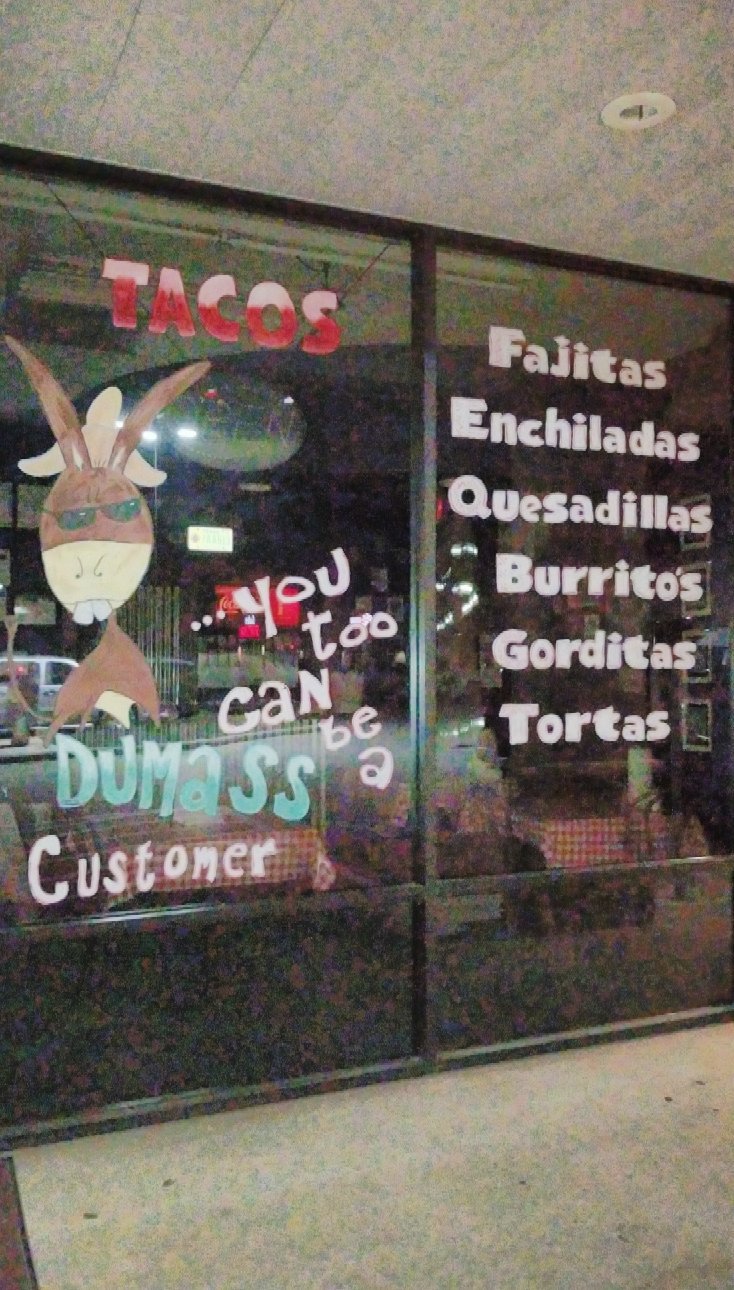 TACOS
...you
too
CaN
be
a
DUMASS
Customer
Fajitas
Enchiladas
Quesadillas
Burrito's
Gorditas
Tortas